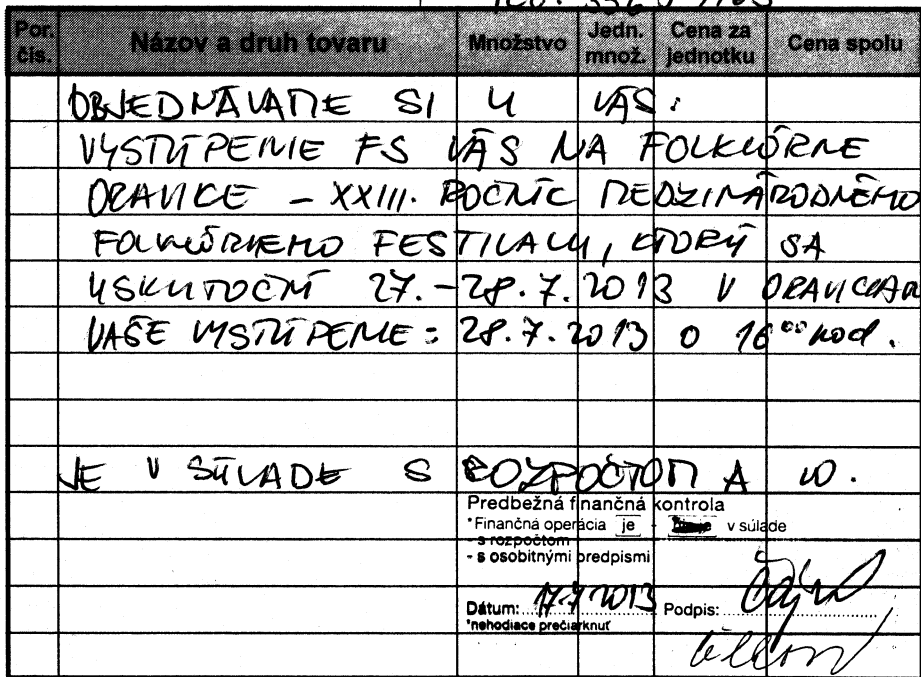 Por. čís. Názov a druh tovaru Množstvo Jedn. množ. Cena za jednotku Cena spolu
OBJEDNÁVAME SI U VÁS:
VYSTÚPENIE FS VÁS NA FOLKLÓRNE
ORAVICE - XXIII. ROČNÍC MEDZINÁRODNÉHO
FOLKLÓRNEHO FESTIVALU, KTORÝ SA
USKUTOČNÍ 27.-28.7.2013 V ORAVICIACH
VAŠE VYSTÚPENIE: 28.7.2013 O 16⁰⁰ hod.
JE V SÚLADE S ROZPOČTOM A VO.
Predbežná finančná kontrola
*Finančná operácia je - v súlade
- s rozpočtom
- s osobitnými predpismi
Dátum: 17.7.2013 Podpis:
*nehodiace prečiarknuť